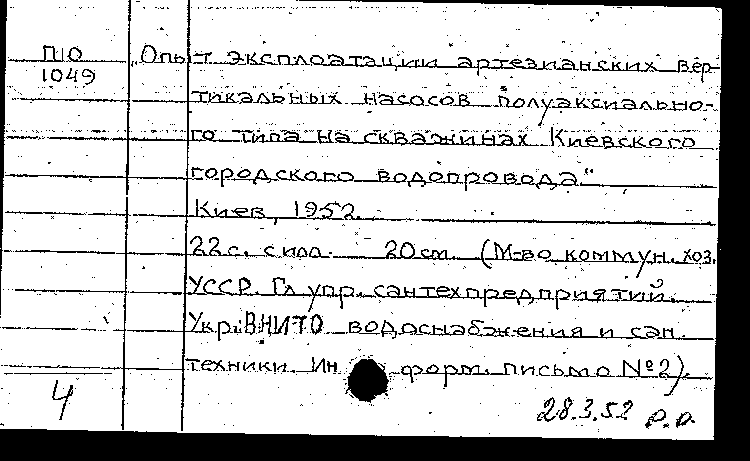 ПО „Опыт эксплоатации артезианских вер-
1049
тикальных насосов полуаксиально-
го типа на скважинах Киевского
городского водопровода“
Киев, 1952.
22 с. с илл. 20 см. (М-во коммун. хоз.
УССР. Гл упр. сантехпредприятий.
Укр.ВНИТО водоснабжения и сан.
техники. Ин форм. письмо №2).
4
28.3.52